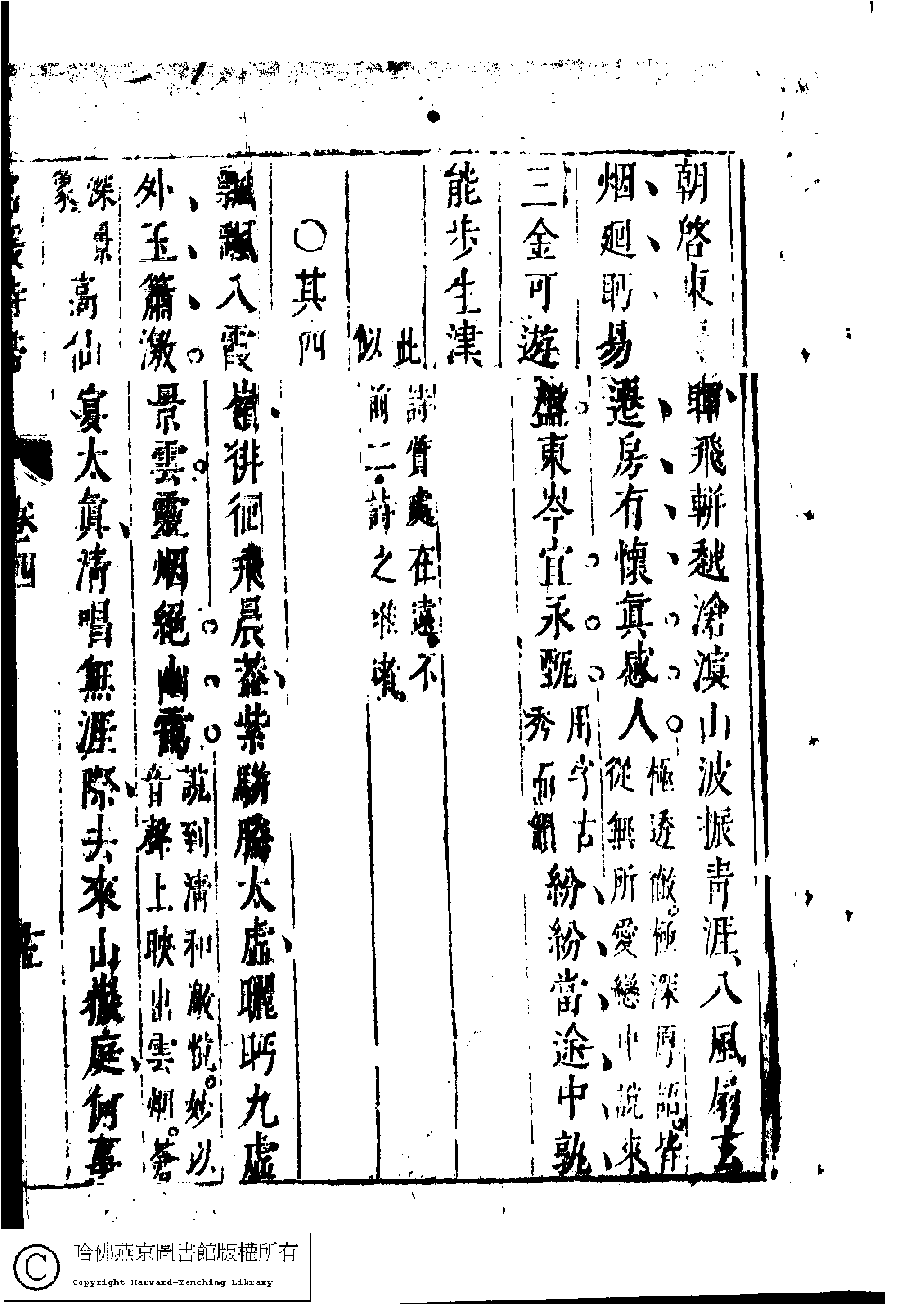 朝啓東 轡飛軿越滄溟山波振青涯八風扇玄
烟廻眄易遷房有懷真感人極透徹極深厚語皆從無所愛戀中說來
三金可遊盤東岑宜永甄用字古秀而 紛紛當途中孰
能步生津
此詩質處在遠不似前二詩之堆
○其四
飄飄入霞嶺徘徊飛晨蓋紫駢騰太虛矖眄九虛
外玉簫激景雲靈烟絕幽藹說到清和敞悅妙以音聲上映出雲烟
深景 高仙宴太真清唱無涯際去來山嶽庭何事
卷四
哈佛燕京圖書館版權所有
Copyright Harvard-Yenching Library